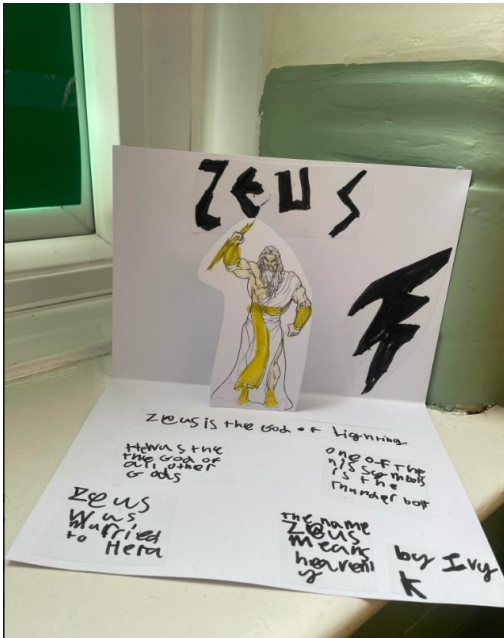 Zeus
Zeus is the God of Lighting
He was the
the God of
all other
Gods
one of the
his symbols
is the
thunder bolt
Zeus
was
married
to Hera
the name
Zeus
means
heavenl
y
by Ivy
K